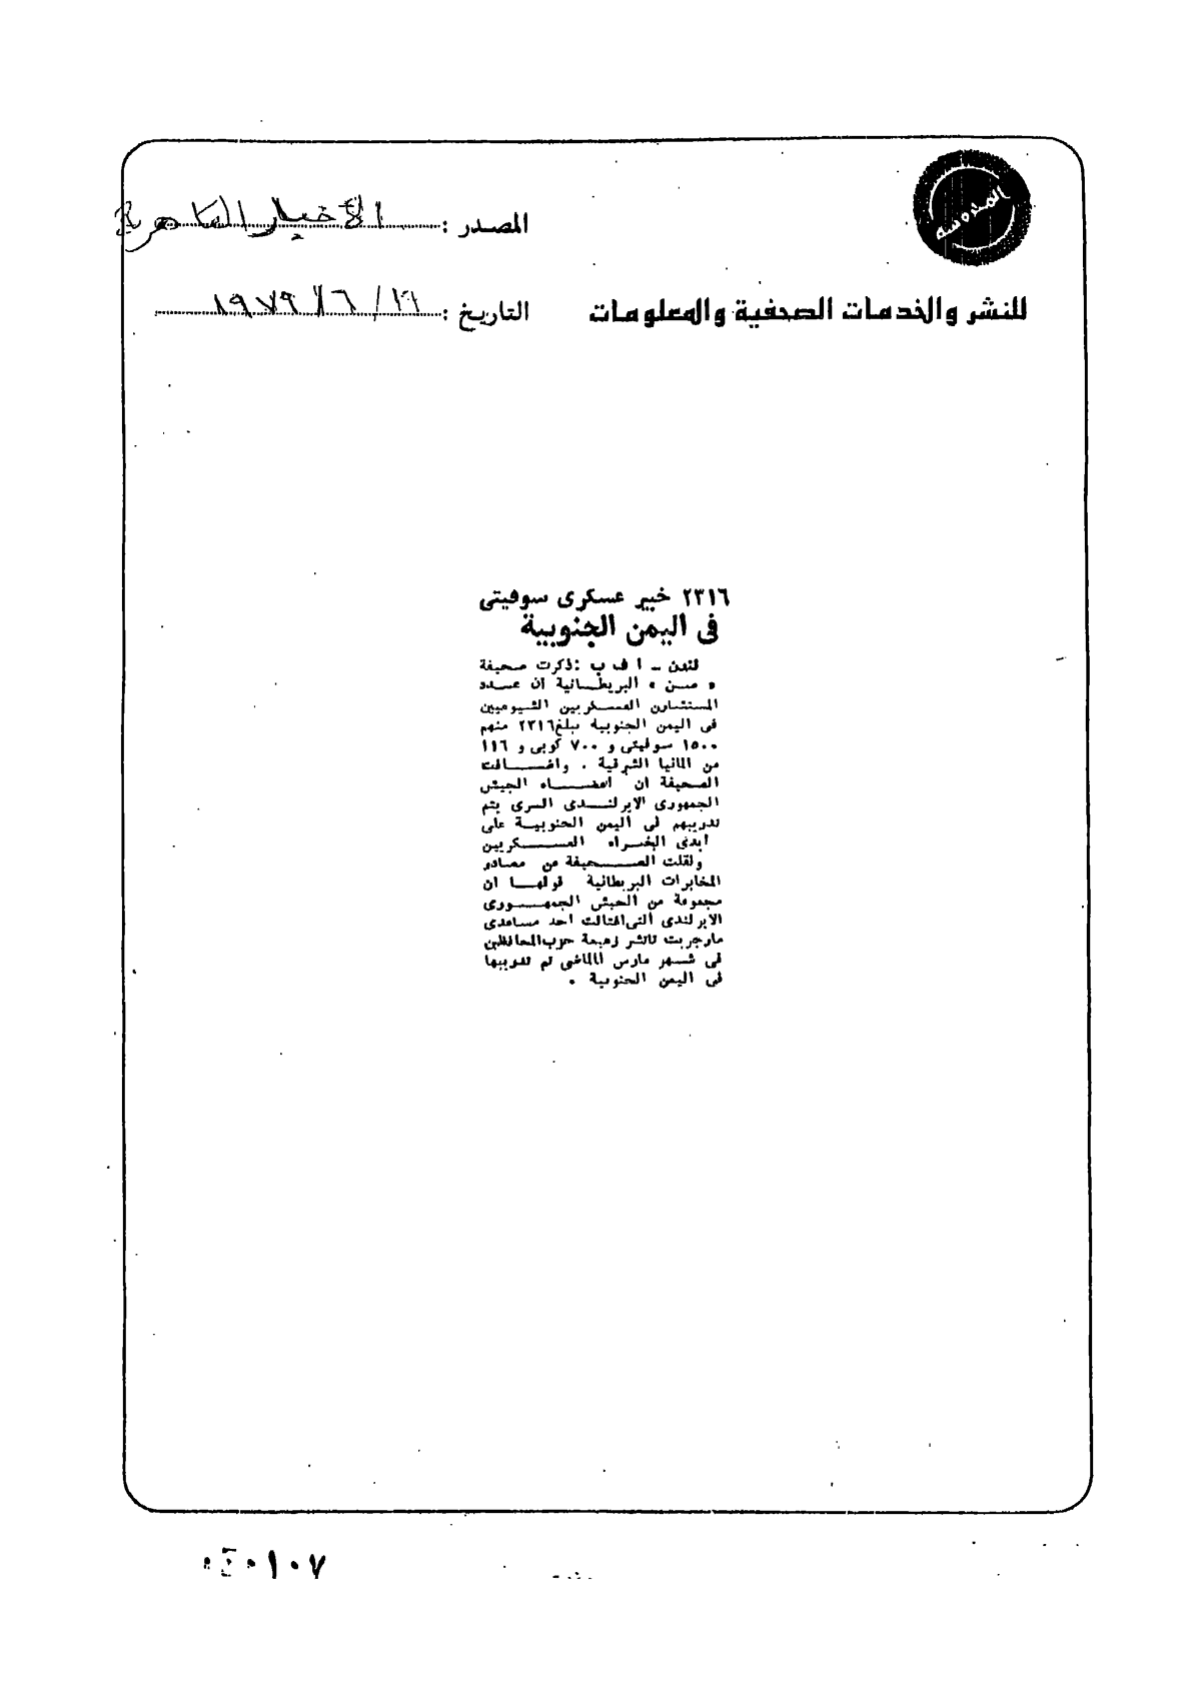 المدوسة
المصدر : الأخبار القاهرية
للنشر والخدمات الصحفية والمعلومات
التاريخ : ١٩٧٩ / ٦ /
٢٣١٦ خبير عسكرى سوفيتى
فى اليمن الجنوبية
لندن ــ ا ف ب : ذكرت صحيفة
« صن » البريطانية ان عدد
المستشارين العسكريين الشيوعيين
فى اليمن الجنوبية يبلغ ٢٣١٦ منهم
١٥٠٠ سوفيتى و ٧٠٠ كوبى و ١١٦
من المانيا الشرقية . واضافت
الصحيفة ان اعضاء الجيش
الجمهورى الايرلندى السرى يتم
تدريبهم فى اليمن الجنوبية على
ايدى الخبراء العسكريين
ونقلت الصحيفة من مصادر
المخابرات البريطانية قولها ان
مجموعة من الجيش الجمهورى
الايرلندى التى اغتالت احد مساعدى
مارجريت تاتشر زعيمة حزب المحافظين
فى شهر مارس الماضى تم تدريبها
فى اليمن الجنوبية .